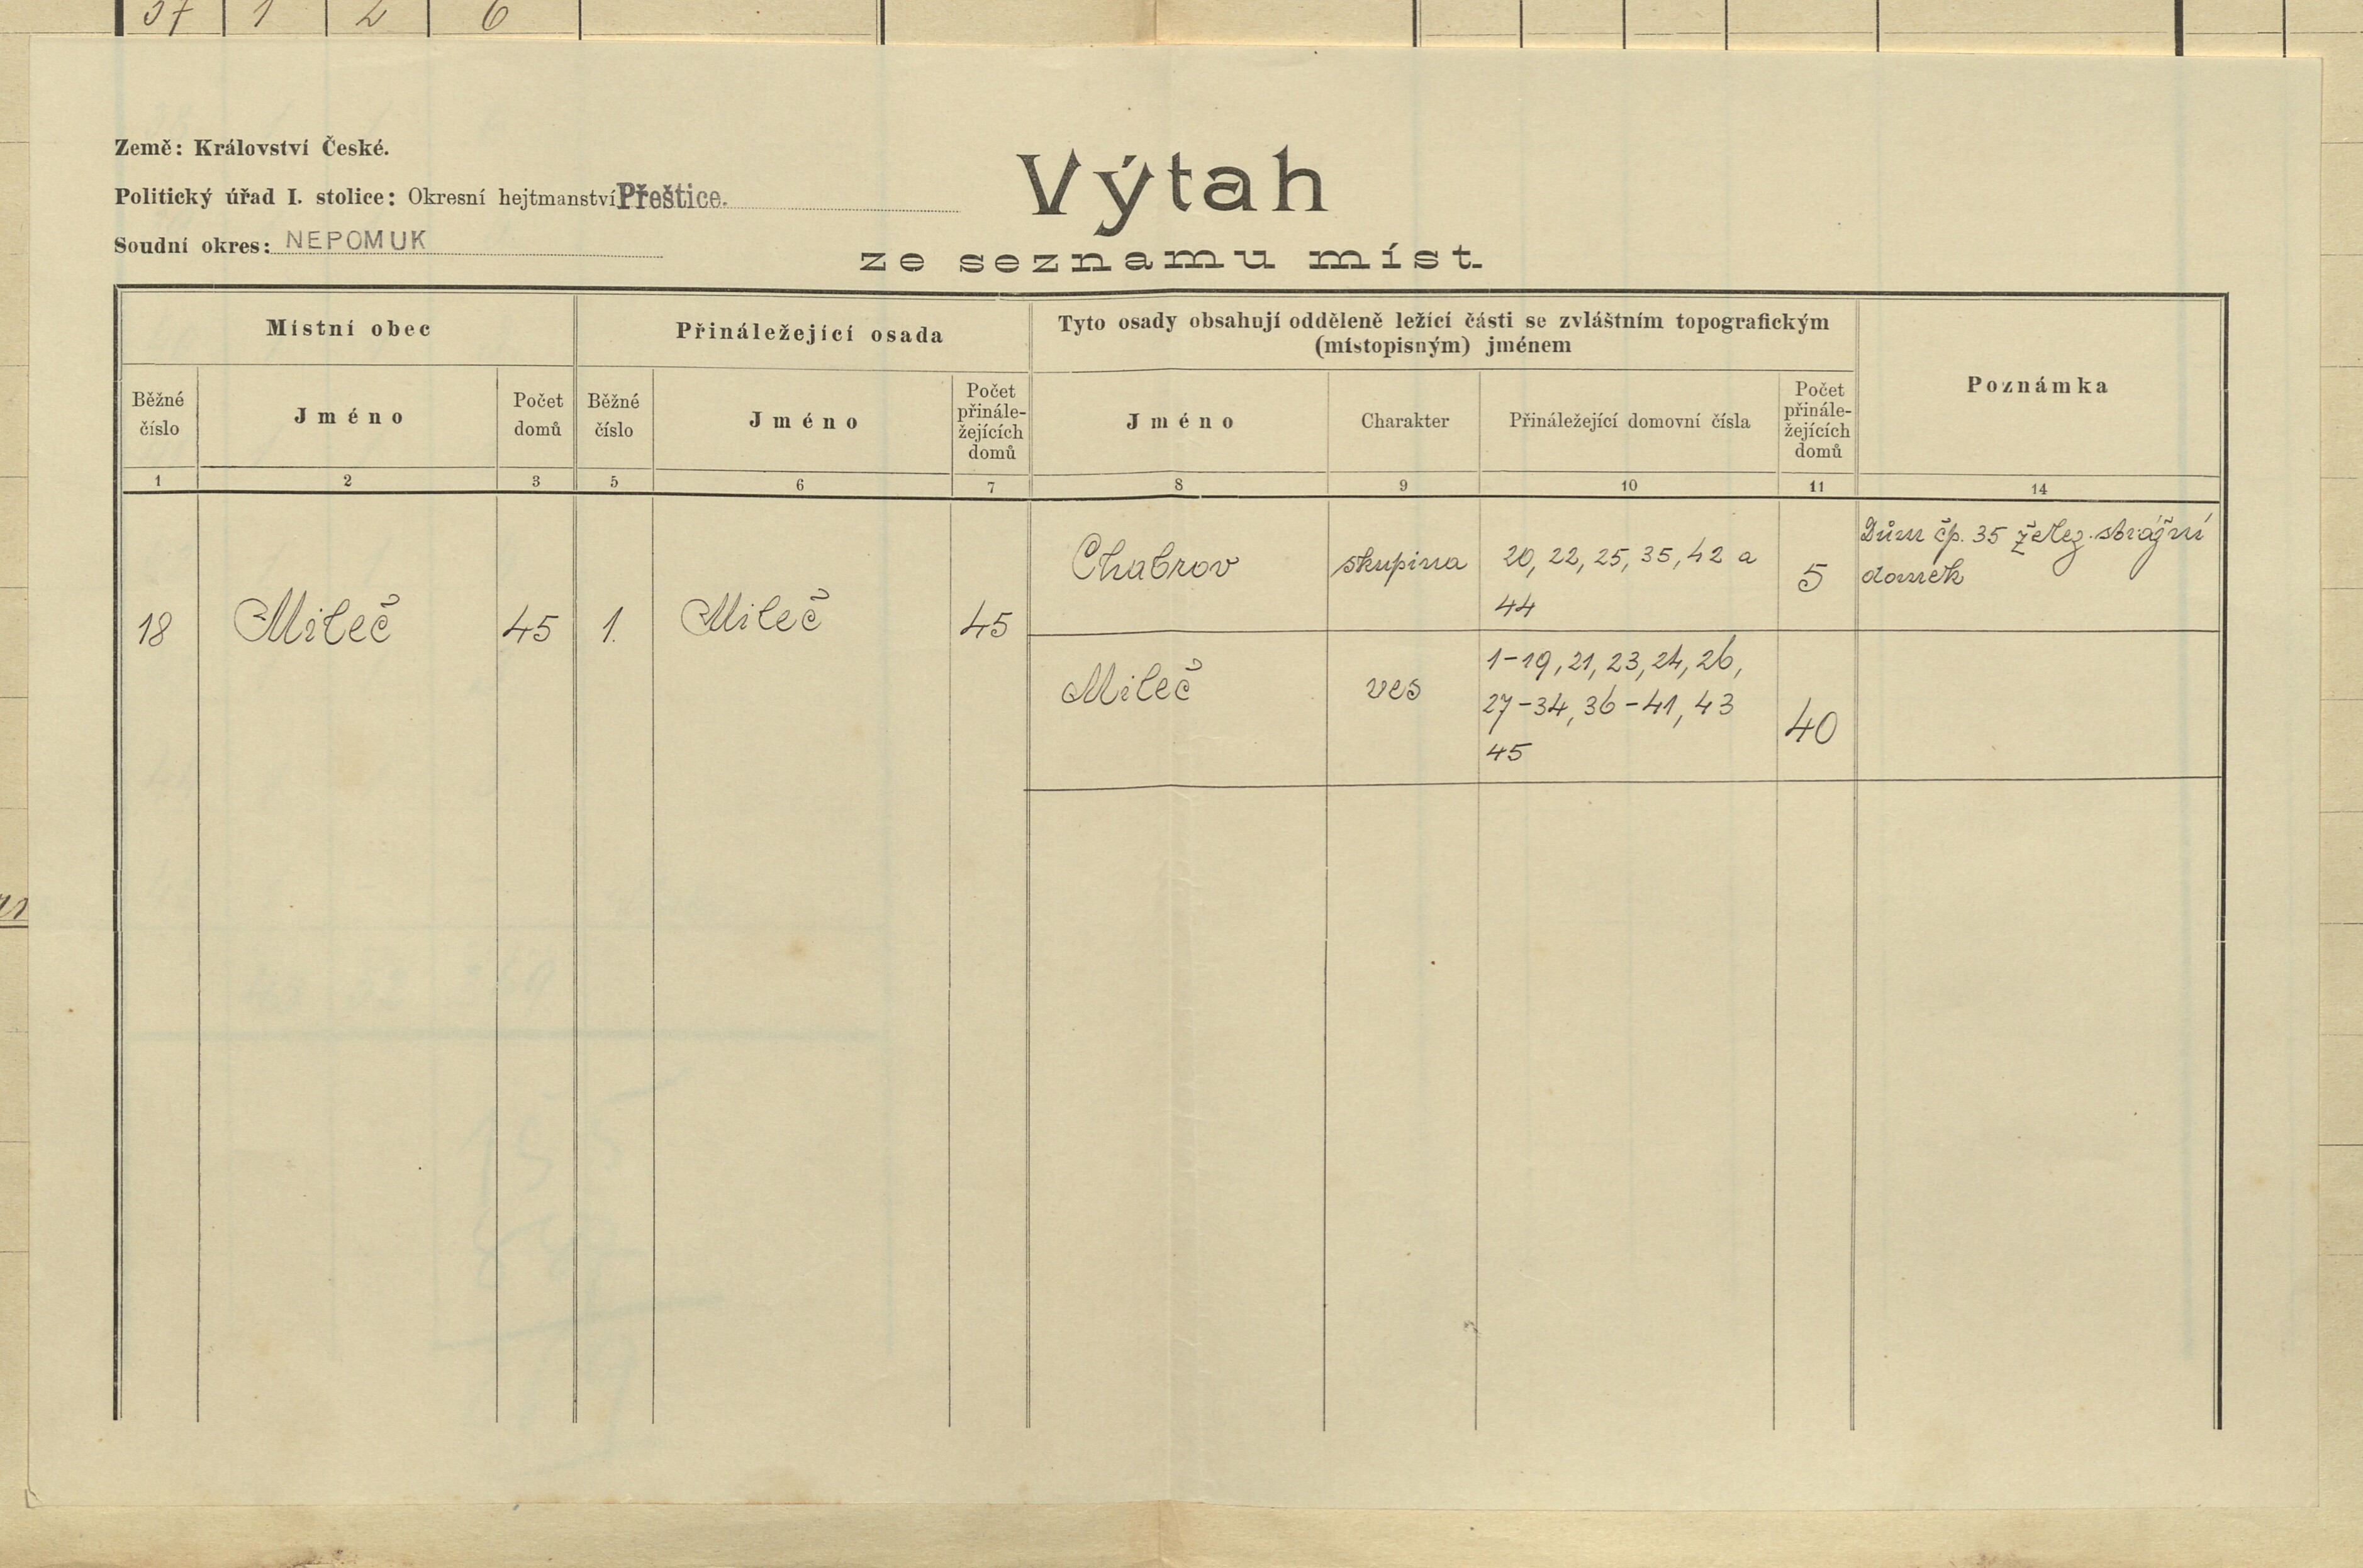 37 1 2 6
Země: Království České.
Politický úřad I. stolice: Okresní hejtmanství Přeštice.
Soudní okres: NEPOMUK
Výtah
ze seznamu míst.
Místní obec
Přináležející osada
Tyto osady obsahují odděleně ležící části se zvláštním topografickým
(místopisným) jménem
Poznámka
Běžné
číslo
Jméno
Počet
domů
Běžné
číslo
Jméno
Počet
přinále-
žejících
domů
Jméno
Charakter
Přináležející domovní čísla
Počet
přinále-
žejících
domů
1 2 3 5 6 7 8 9 10 11 14
18 Mileč 45 1. Mileč 45
Chabrov skupina 20, 22, 25, 35, 42 a
44
5
Dům čp. 35 želez. strážní
domek
Mileč ves 1-19, 21, 23, 24, 26,
27-34, 36-41, 43
45
40